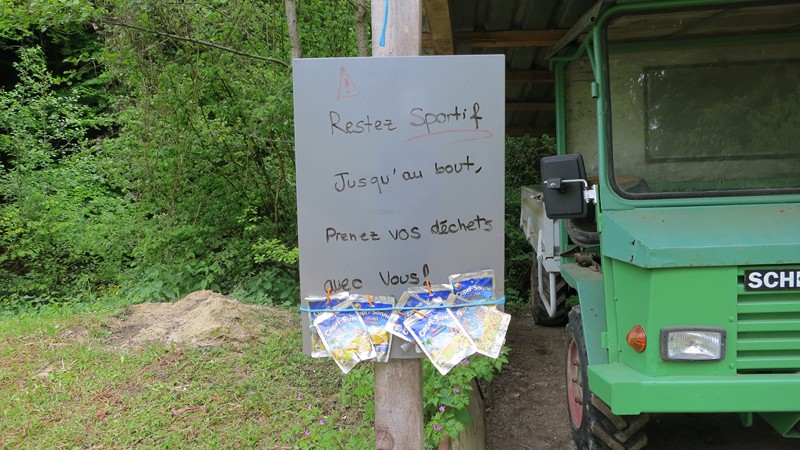 Restez Sportif
Jusqu'au bout,
Prenez vos déchets
avec Vous!
Capri-Sun
SCH